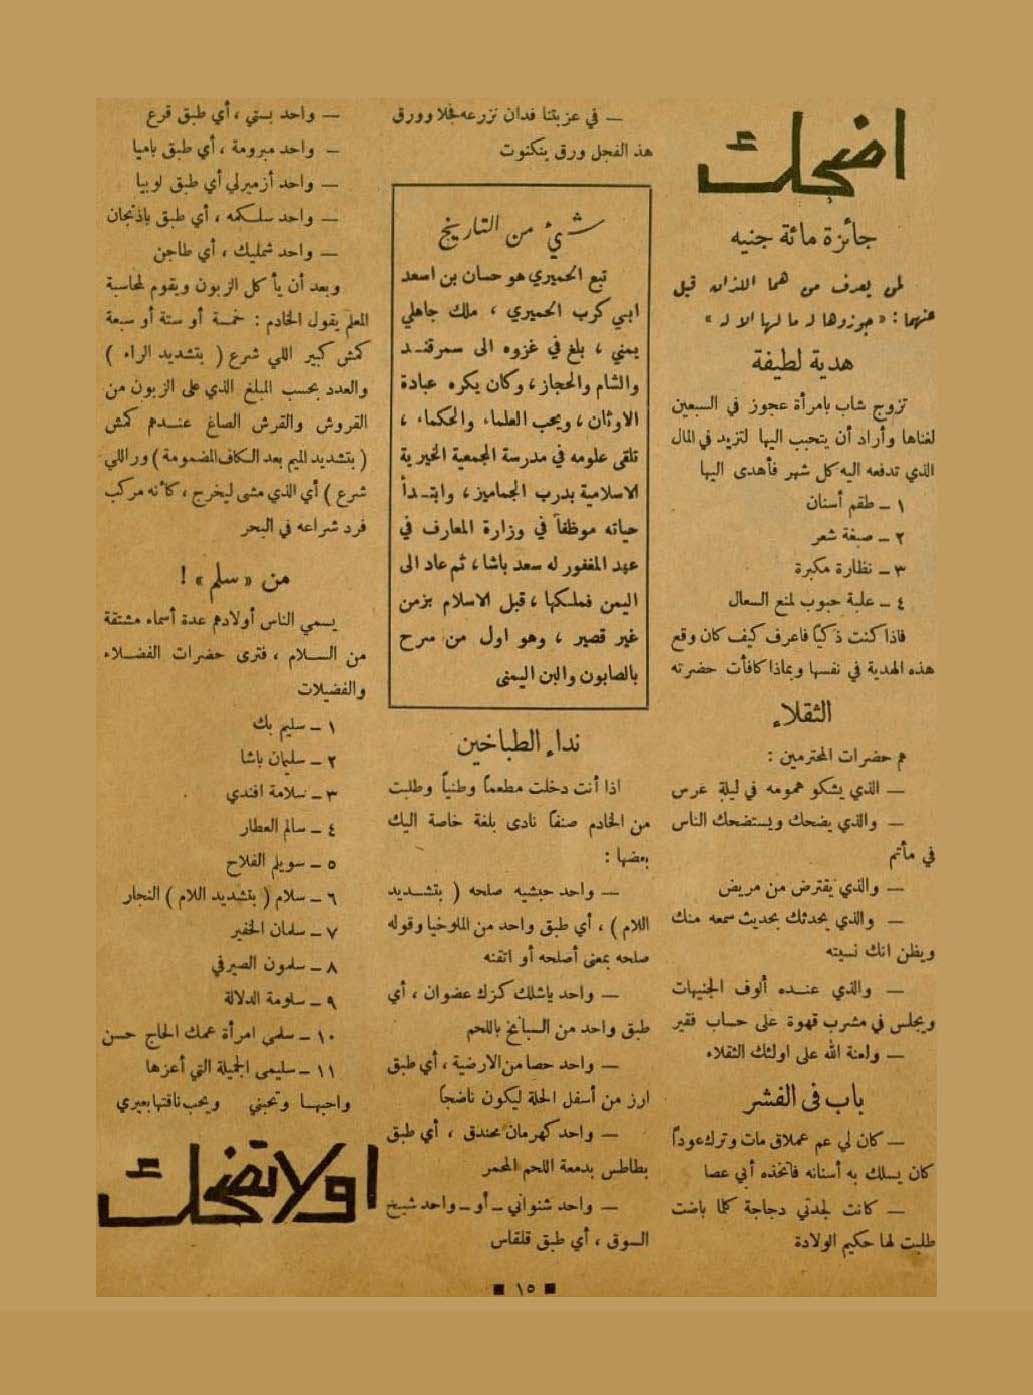 اضحك
جائزة مائة جنيه
لمن يعرف من هما اللذان قيل
عنهما : « جوزوها له ما لها الا له »
هدية لطيفة
تزوج شاب بامرأة عجوز في السبعين
لغناها وأراد أن يتحبب اليها لتزيد في المال
الذي تدفعه اليه كل شهر فأهدى اليها
١ – طقم أسنان
٢ – صبغة شعر
٣ – نظارة مكبرة
٤ – علبة حبوب لمنع السعال
فاذا كنت ذكياً فاعرف كيف كان وقع
هذه الهدية في نفسها وبماذا كافأت حضرته
الثقلاء
هم حضرات المحترمين :
— الذي يشكو همومه في ليلة عرس
— والذي يضحك ويستضحك الناس
في مأتم
— والذي يقترض من مريض
— والذي يحدثك بحديث سمعه منك
ويظن انك نسيته
— والذي عنده ألوف الجنيهات
ويجلس في مشرب قهوة على حساب فقير
— ولعنة الله على اولئك الثقلاء
باب في الفشر
— كان لي عم عملاق مات وترك عوداً
كان يسلك به أسنانه فاتخذه أبي عصا
— كانت لجدتي دجاجة كلما باضت
طلبت لها حكيم الولادة
— في عزبتنا فدان نزرعه فجلا وورق
هذ الفجل ورق بنكنوت
شيء من التاريخ
تبع الحميري هو حسان بن اسعد
ابي كرب الحميري ، ملك جاهلي
يمني ، بلغ في غزوه الى سمرقند
والشام والحجاز ، وكان يكره عبادة
الاوثان ، ويحب العلماء والحكماء ،
تلقى علومه في مدرسة الجمعية الخيرية
الاسلامية بدرب الجماميز ، وابتدأ
حياته موظفاً في وزارة المعارف في
عهد المغفور له سعد باشا ، ثم عاد الى
اليمن فملكها ، قبل الاسلام بزمن
غير قصير ، وهو اول من سرح
بالصابون والبن اليمنى
نداء الطباخين
اذا أنت دخلت مطعماً وطنياً وطلبت
من الخادم صنفاً نادى بلغة خاصة اليك
بعضها :
— واحد حبشيه صلحه ( بتشديد
اللام ) ، أي طبق واحد من الملوخيا وقوله
صلحه بمعنى أصلحه أو اتقنه
— واحد ياشلك كزك عضوان ، أي
طبق واحد من السبانخ باللحم
— واحد حصا من الارضية ، أي طبق
ارز من أسفل الحلة ليكون ناضجاً
— واحد كهرمان مخندق ، أي طبق
بطاطس بدمعة اللحم المحمر
— واحد شنواني – أو – واحد شيخ
السوق ، أي طبق قلقاس
— واحد بستي ، أي طبق قرع
— واحد مبرومة ، أي طبق باميا
— واحد أزميرلي أي طبق لوبيا
— واحد سلكمه ، أي طبق باذنجان
— واحد شمليك ، أي طاجن
وبعد أن يأكل الزبون ويقوم لمحاسبة
المعلم يقول الخادم : خمسة أو ستة أو سبعة
كمش كبير اللي شرع ( بتشديد الراء )
والعدد بحسب المبلغ الذي على الزبون من
القروش والقرش الصاغ عندهم كمش
( بتشديد الميم بعد الكاف المضمومة ) ور اللي
شرع ) أي الذي مشى ليخرج ، كأنه مركب
فرد شراعه في البحر
من « سلم » !
يسمي الناس أولادهم عدة أسماء مشتقة
من السلام ، فترى حضرات الفضلاء
والفضيلات
١ – سليم بك
٢ – سليمان باشا
٣ – سلامة افندي
٤ – سالم العطار
٥ – سويلم الفلاح
٦ – سلام ( بتشديد اللام ) النجار
٧ – سلمان الخفير
٨ – سلمون الصيرفي
٩ – سلومة الدلالة
١٠ – سلمى امرأة عمك الحاج حسن
١١ – سليمى الجميلة التي أعزها
واحبها وتحبني ويحب ناقتها بعيري
اولا تضحك
١٥